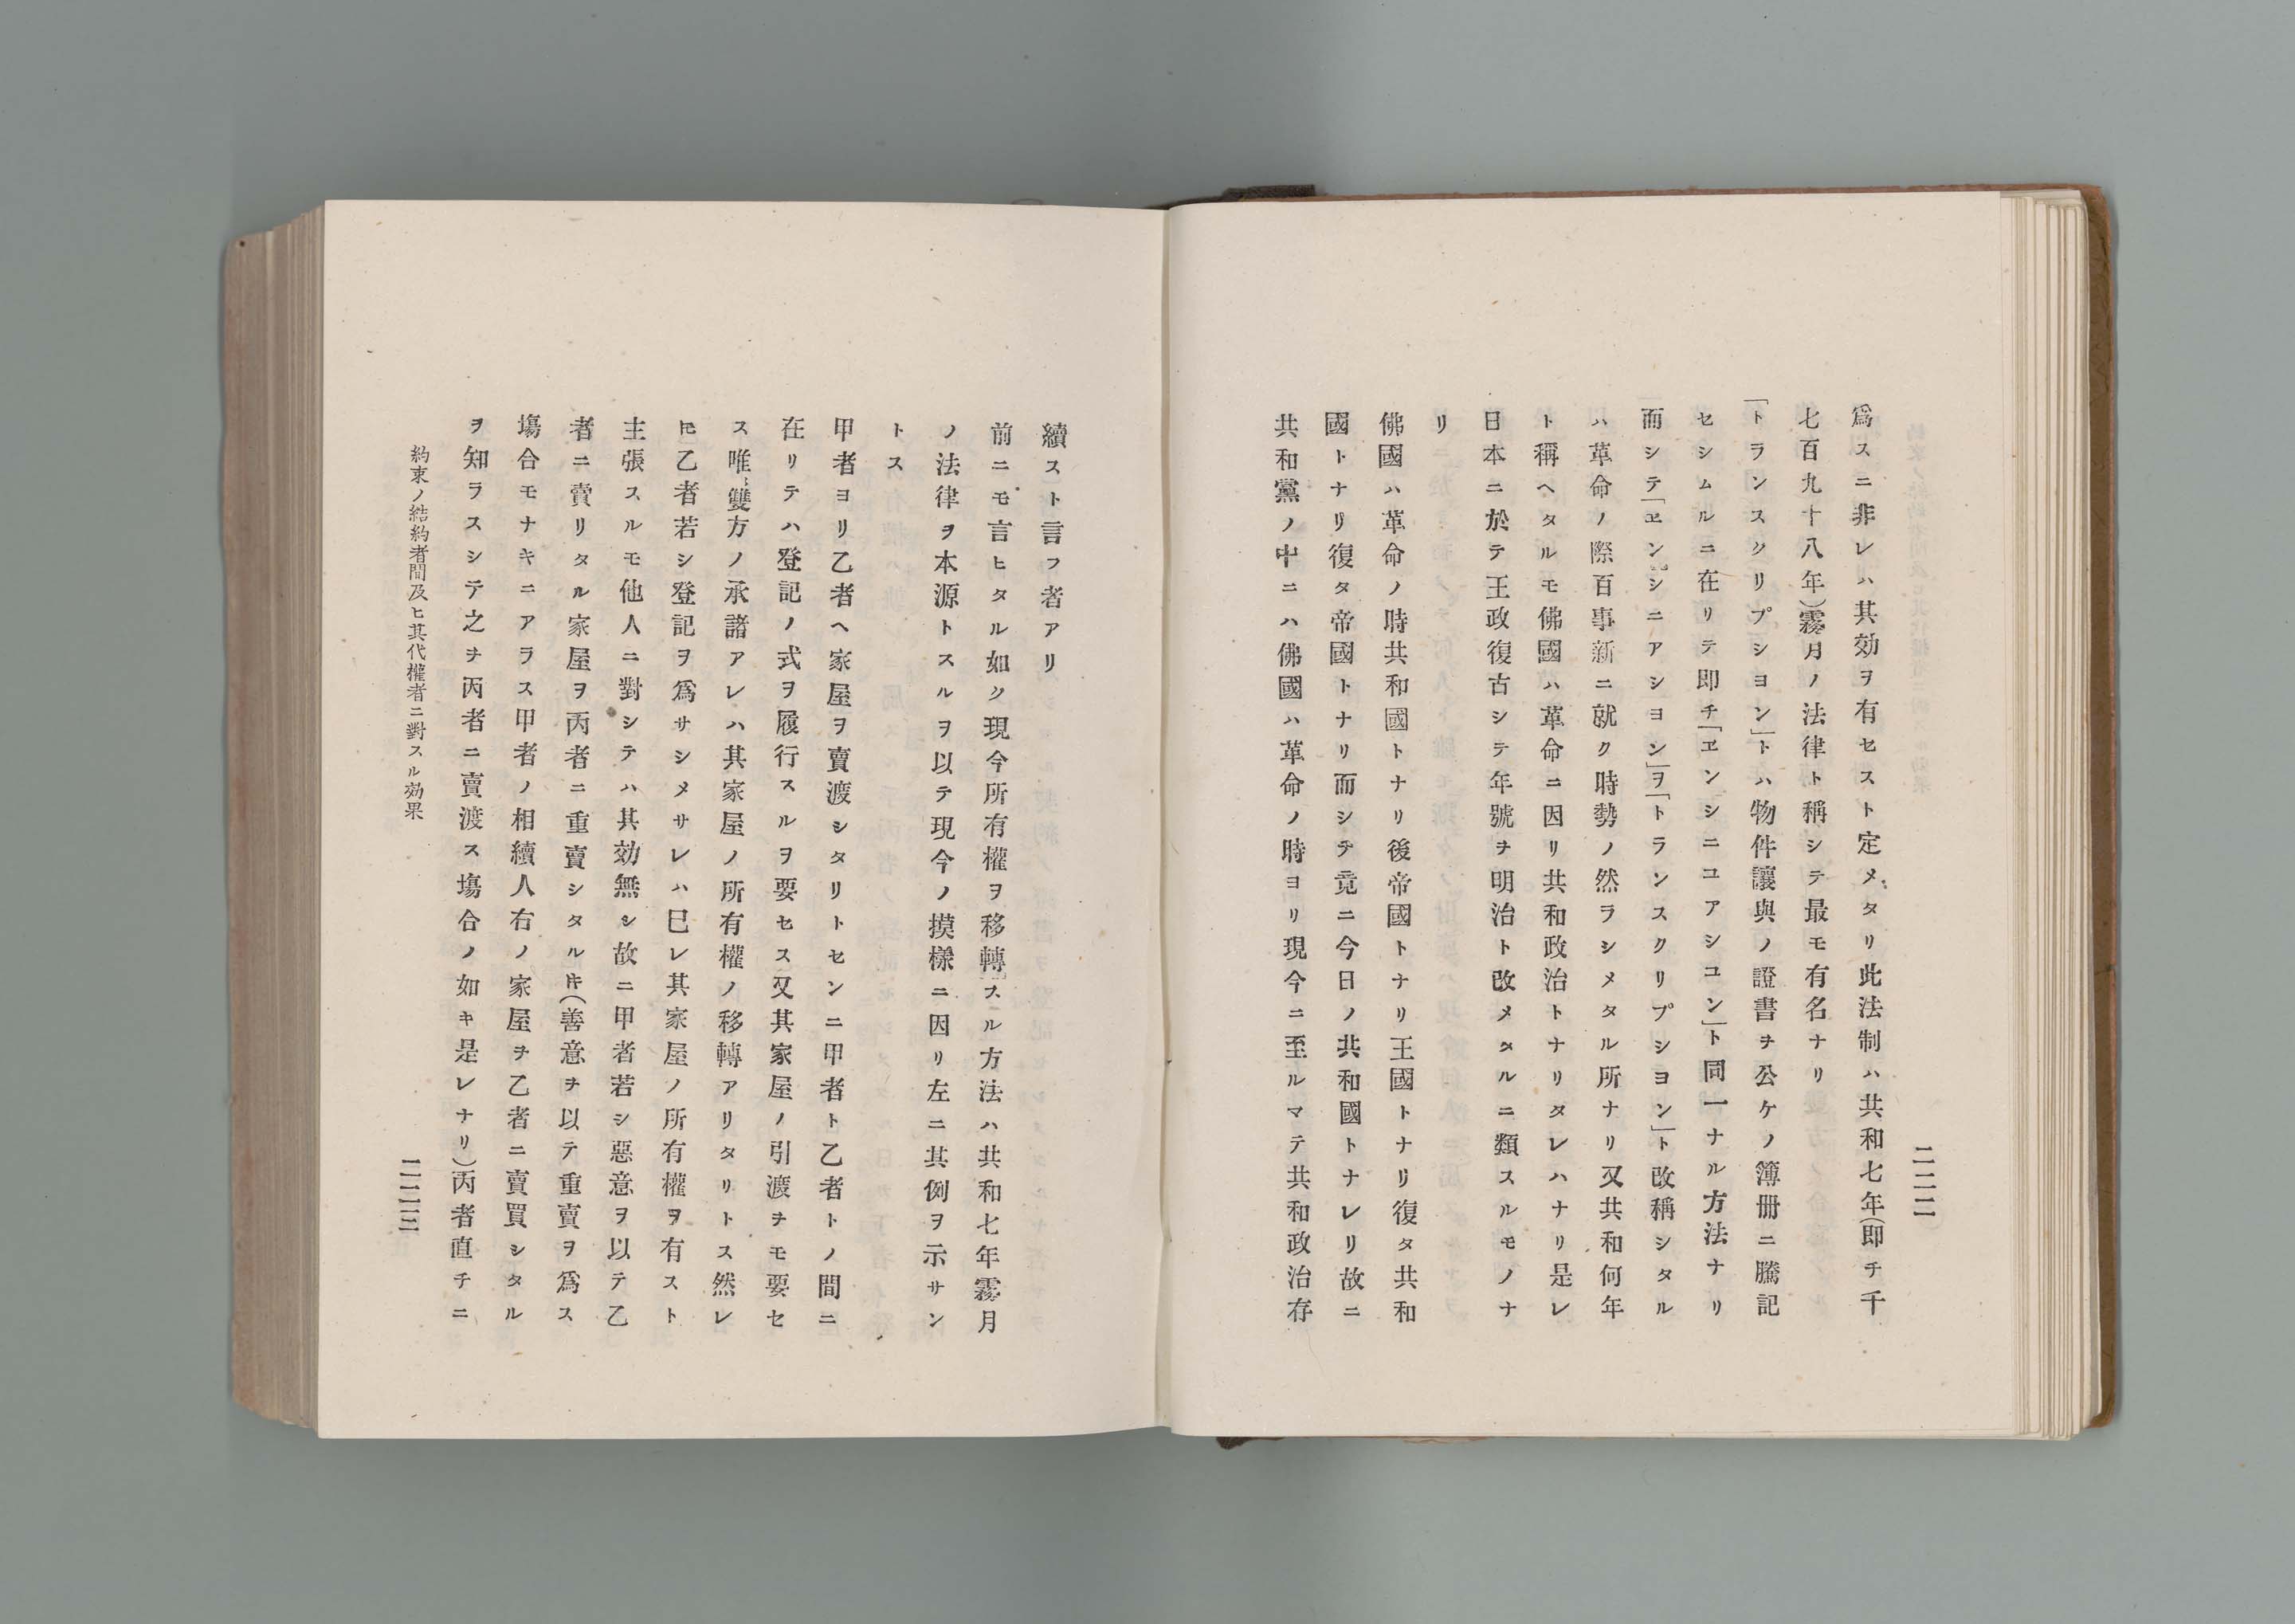 二二二
爲スニ非レハ其効ヲ有セスト定メタリ此法制ハ共和七年(即チ千
七百九十八年)霧月ノ法律ト稱シテ最モ有名ナリ
「トランスクリプシヨン」トハ物件讓與ノ證書ヲ公ケノ簿册ニ騰記
セシムルニ在リテ即チ「ヱンシニユアシヨン」ト同一ナル方法ナリ
而シテ「ヱンシニアシヨン」ヲ「トランスクリプシヨン」ト改稱シタル
ハ革命ノ際百事新ニ就ク時勢ノ然ラシメタル所ナリ又共和何年
ト稱ヘタルモ佛國ハ革命ニ因リ共和政治トナリタレハナリ是レ
日本ニ於テ王政復古シテ年號ヲ明治ト改メタルニ類スルモノナ
リ
佛國ハ革命ノ時共和國トナリ後帝國トナリ王國トナリ復タ共和
國トナリ復タ帝國トナリ而シテ竟ニ今日ノ共和國トナレリ故ニ
共和黨ノ中ニハ佛國ハ革命ノ時ヨリ現今ニ至ルマテ共和政治存
續スト言フ者アリ
前ニモ言ヒタル如ク現今所有權ヲ移轉スル方法ハ共和七年霧月
ノ法律ヲ本源トスルヲ以テ現今ノ摸樣ニ因リ左ニ其例ヲ示サン
トス
甲者ヨリ乙者ヘ家屋ヲ賣渡シタリトセンニ甲者ト乙者トノ間ニ
在リテハ登記ノ式ヲ履行スルヲ要セス又其家屋ノ引渡ヲモ要セ
ス唯雙方ノ承諾アレハ其家屋ノ所有權ノ移轉アリタリトス然レ
𪜈乙者若シ登記ヲ爲サシメサレハ已レ其家屋ノ所有權ヲ有スト
主張スルモ他人ニ對シテハ其効無シ故ニ甲者若シ惡意ヲ以テ乙
者ニ賣リタル家屋ヲ丙者ニ重賣シタル𬼀(善意ヲ以テ重賣ヲ爲ス
塲合モナキニアラス甲者ノ相續人右ノ家屋ヲ乙者ニ賣買シタル
ヲ知ラスシテ之ヲ丙者ニ賣渡ス塲合ノ如キ是レナリ)丙者直チニ
約束ノ結約者間及ヒ其代權者ニ對スル効果
二二三